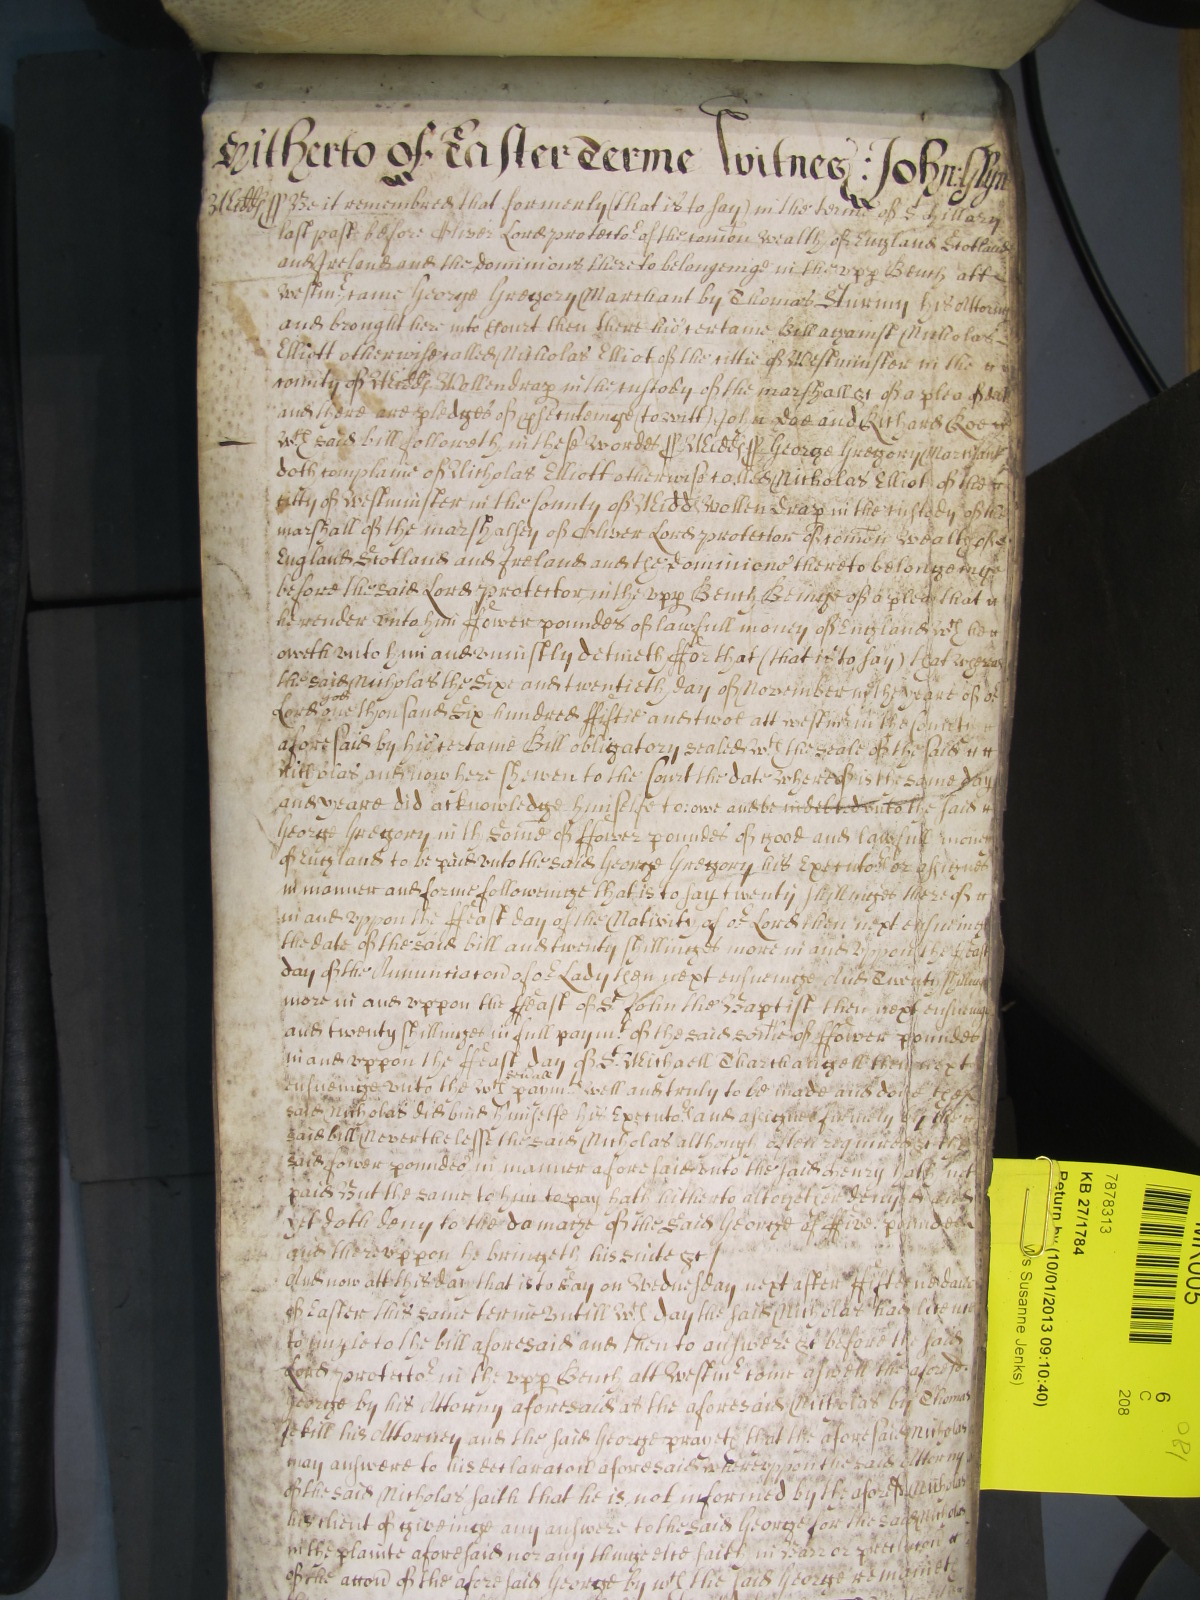 Hitherto of Easter Terme Witnes: John Glyn
Midds ss Be it remembred that formerly (that is to say) in the terme of St Hillary
last past before Oliver Lord protector of the comon wealth of England Scotland
and Ireland and the dominions thereto belongeinge in the upp Bench att
Westmr came George Gregory Marchant by Thomas Sturmy his Attorny
and brought here into Court then there his certaine Bill against Nicholas
Elliott otherwise called Nicholas Elliot of the cittie of Westminster in the
county of Midds Wollendrap in the custody of the marshall &c of a plea of debt
and there are pledges of psecuteinge (to witt) John Doe and Richard Roe
wch said bill followeth in these wordes ss Midds ss George Gregory Marchant
doth complaine of Nicholas Elliott otherwise called Nicholas Elliot of the
citty of Westminster in the County of Midd Wollen drap in the custody of the
marshall of the marshalsey of Oliver Lord protector of comon Wealth of
England Scotland and Ireland and the dominions thereto belongeinge
before the said Lord protector in the upp Bench Beinge of a plea that
he render unto him ffower poundes of lawfull money of England wch he
oweth unto him and uniustly deteineth ffor that (that is to say) that whereas
the said Nicholas the Sixe and twentieth day of November in the yeare of or
Lord god one thousand Six hundred ffiftie and twoe att Westmr in the County
aforesaid by his certaine Bill obligatory sealed wth the seale of the said
Nicholas and now here shewen to the Court the date whereof is the same day
and yeare did acknowledge himselfe to owe and be indebted unto the said
George Gregory in the some of ffower poundes of good and lawfull money
of England to be paid unto the said George Gregory his Executors or assignes
in manner and forme followeinge that is to say twenty shillinges thereof
in and uppon the ffeast day of the Nativity of or Lord then next ensueinge
the date of the said bill and twenty shillinges more in and uppon the ffeast
day of the Annuntiacon of or Lady then next ensueinge And Twenty shillinges
more in and uppon the ffeast of St John the Baptist then next ensueinge
and twenty shillinges in full paymt of the said some of ffower poundes
in and uppon the ffeast day of St Michaell Tharchangell then next
ensueinge unto the wch paymt well and truly to be made and done the
said Nicholas did bind himselfe his Executors and assignes firmely by the
said bill Neverthelesse the said Nicholas although often required &c the
said fower poundes in manner aforesaid unto the said Henry hath not
paid But the same to him to pay hath hitherto altogether denyed and
yet doth deny to the damage of the said George of ffive poundes
and thereuppon he bringeth his suite &c
And now att this day that is to say on Wednesday next after ffifteene daies
of Easter this same terme untill wch day the said Nicholas had licence
to imple to the bill aforesaid and then to answere &c before the said
Lord protector in the upp Bench att Westmr come aswell the aforesd
George by his Attorny aforesaid as the aforesaid Nicholas by Thomas
Jekill his Attorney and the said George prayeth that the aforesaid Nicholas
may answere to his declaracon aforesaid whereuppon the said Attorny
of the said Nicholas saith that he is not informed by the aforesd Nicholas
his client of giveinge any answere to the said George for the said Nicholas
in the plainte aforesaid nor any thinge else saith in barr or preclusion
of the accon of the aforesaid George by wch the said George remaineth
7878313
KB 27/1784
Return by (10/01/2013 09:10:40)
Susanne Jenks)
6
C
208